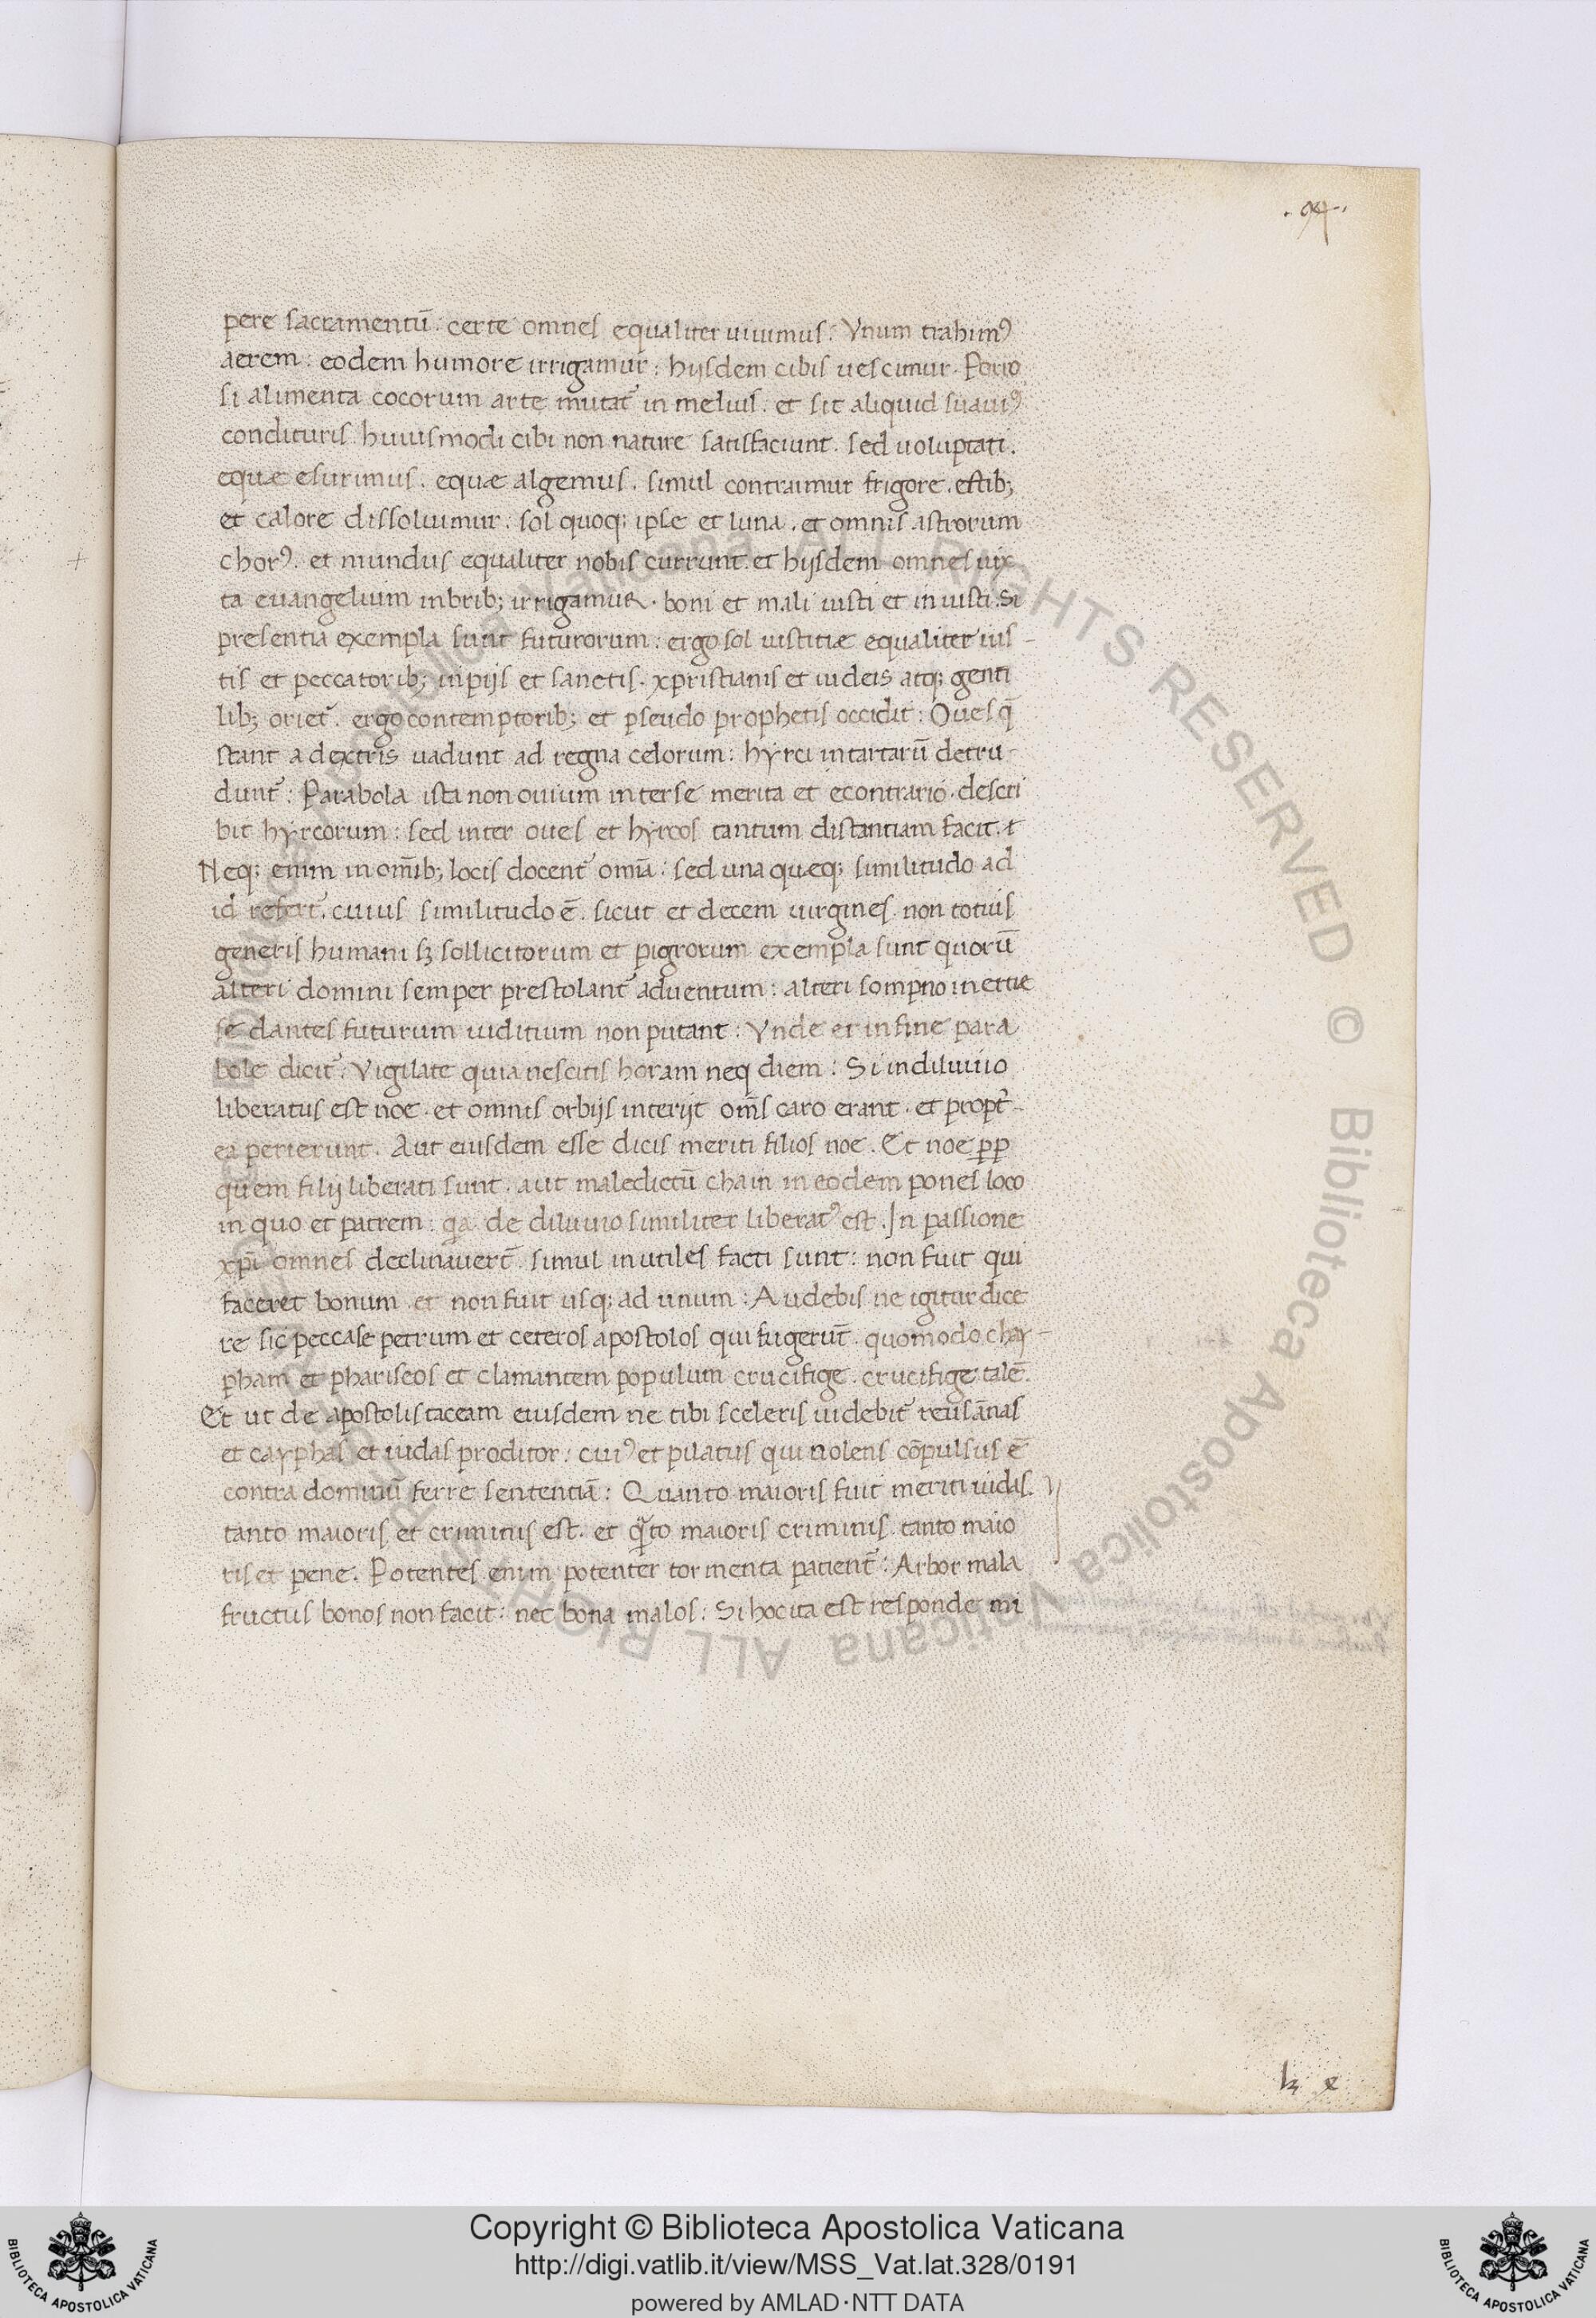 .94.
pere sacramentū: certe omnes equaliter uiuimus: Vnum trahimꝰ
aerem: eodem humore irrigamur: hijsdem cibis uescimur. Porro
si alimenta cocorum arte mutat̄ in melius. et sit aliquid suauiꝰ
condituris. huiusmodi cibi non nature satisfaciunt. sed uoluptati.
equæ esurimus. equæ algemus. simul contraimur frigore. estib;
et calore dissoluimur. sol quoq; ipse et luna. et omnis astrorum
chorꝰ. et mundus equaliter nobis currunt. et hijsdem omnes uix
ta euangelium inbrib; irrigamur. boni et mali iusti et iniusti. Si
presentia exempla sunt futurorum: ergo sol iustitiæ equaliter ius-
tis et peccatorib; inpijs et sanctis. xpristianis et iudeis atq; genti
lib; oriet̄. ergo contemptorib; et pseudo prophetis occidit: Oues q̄
stant a dextris uadunt ad regna celorum: hyrci in tartarū detru-
dunt̄: Parabola ista non ouium inter se merita et econtrario. descri
bit hyrcorum: sed inter oues et hyrcos tantum distantiam facit. t
Neq; enim in om̄ib; locis docent̄ om̄ia: sed una quæq; similitudo ad
id refert̄. cuius similitudo ē. sicut et decem uirgines. non totius
generis humani sꝫ sollicitorum et pigrorum exempla sunt quorū
alteri domini semper prestolant̄ aduentum: alteri sompno inertie
se dantes futurum iuditium non putant: Vnde et in fine para
bole dicit̄: Vigilate quia nescitis horam neq diem: Si in diluuio
liberatus est noe. et omnis orbijs interijt om̄s caro erant. et propt̄-
ea perierunt. Aut eiusdem esse dicis meriti filios noe. Et noe ꝓꝑ
quem filij liberati sunt. aut maledictū cham in eodem pones loco
in quo et patrem: qa de diluuio similiter liberatꝰ est. In passione
xp̄i omnes declinauert̄. simul inutiles facti sunt: non fuit qui
faceret bonum et non fuit usq; ad unum: Audebis ne igitur dice
re sic peccase petrum et ceteros apostolos qui fugerūt. quomodo chay-
pham et phariseos et clamantem populum crucifige. crucifige talē.
Et ut de apostolis taceam eiusdem ne tibi sceleris uidebit̄ reus ānas
et cayphas et iudas proditor: cuiꝰ et pilatus qui nolens cōpulsus ē
contra dominū ferre sententiā: Quanto maioris fuit meriti iudas.
tanto maioris et criminis est. et q̄to maioris criminis. tanto maio
ris et pene. Potentes enim potenter tormenta patient̄: Arbor mala
fructus bonos non facit: nec bona malos: Si hoc ita est responde mi
Copyright © Biblioteca Apostolica Vaticana
http://digi.vatlib.it/view/MSS_Vat.lat.328/0191
powered by AMLAD·NTT DATA
BIBLIOTECA APOSTOLICA VATICANA
BIBLIOTECA APOSTOLICA VATICANA
Biblioteca Apostolica Vaticana ALL RIGHTS RESERVED © Biblioteca Apostolica Vaticana ALL RIGHTS RESERVED ©